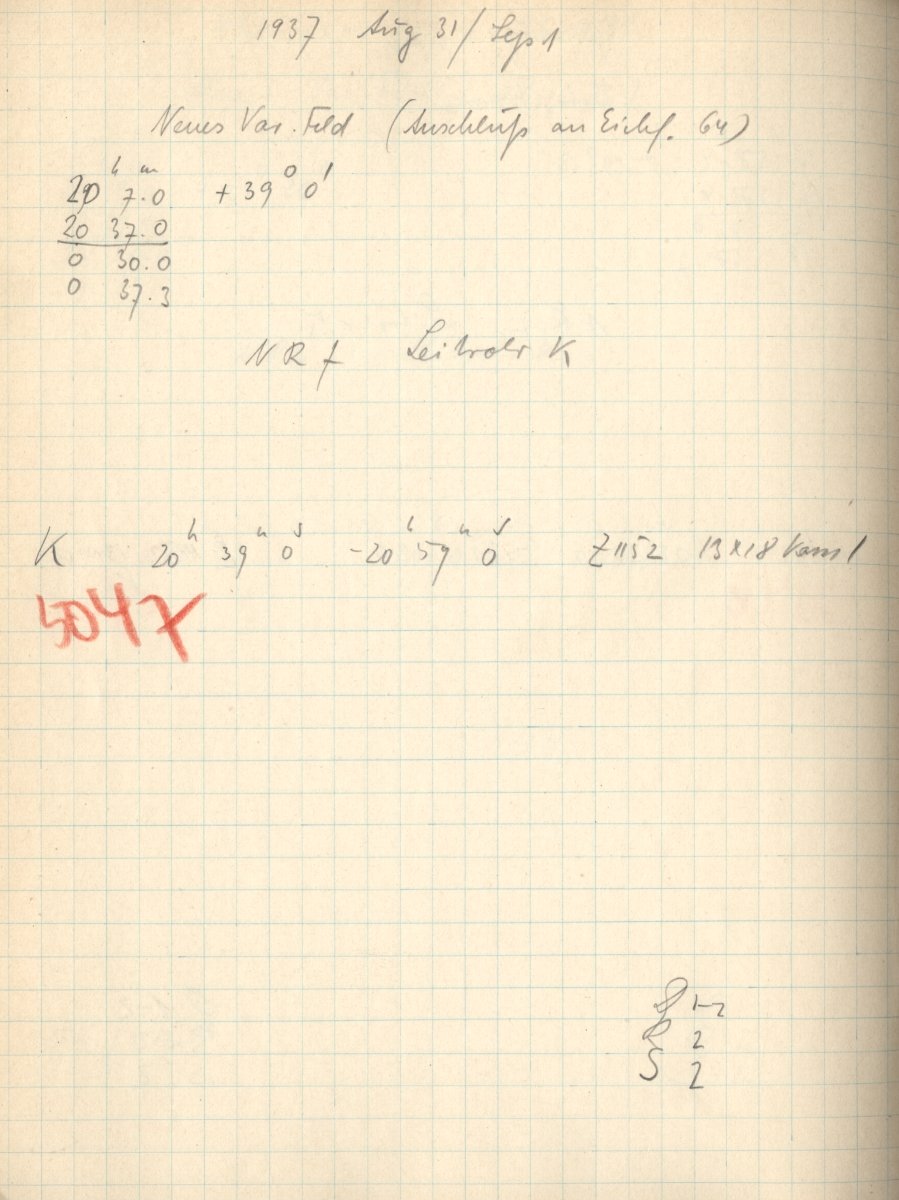 1937 Aug 31/Sept 1
Neues Var. Feld (Anschluß an Eichf. 64)
20h 7m.0 +39° 0'
20 37.0
0 30.0
0 37.3
NRf Leitrohr K
K 20h 39m 0s -20h 59m 0s Z1152 13x18
5047
1-2
R 2
S 2